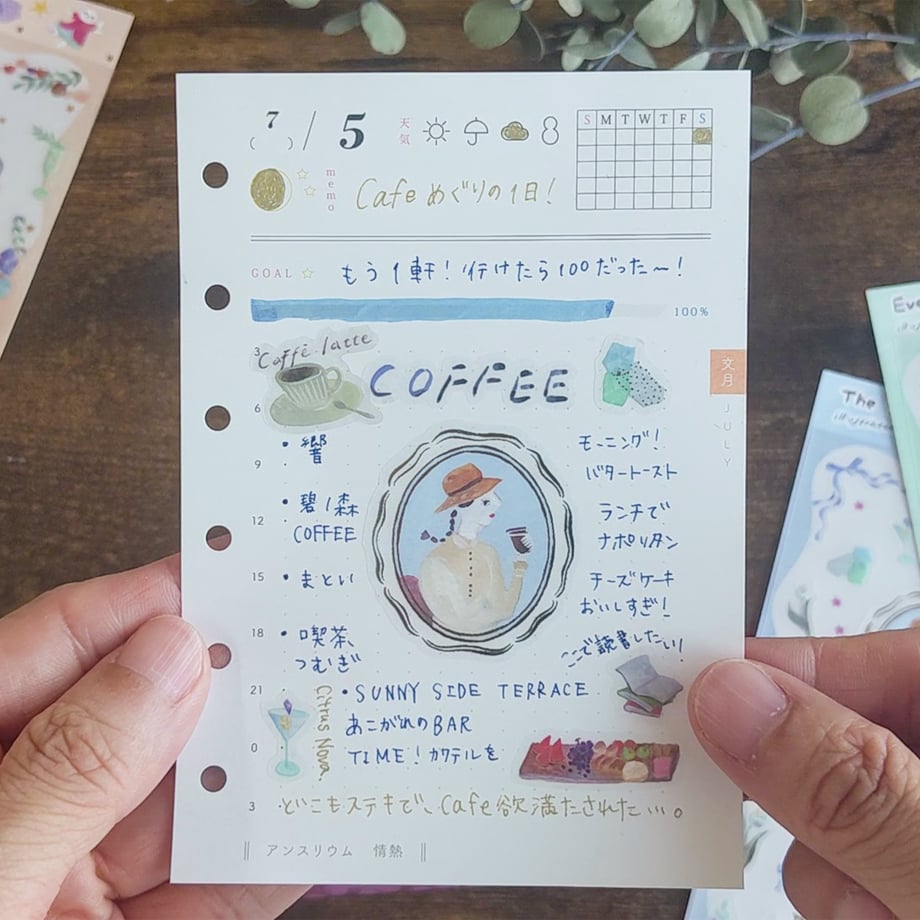 7
( ) / 5
天気
S M T W T F S
memo
Cafeめぐりの1日!
GOAL
もう1軒!行けたら100だった〜!
100%
3
Caffè latte
COFFEE
文月
JULY
6
・響
モーニング!
9
バタートースト
・碧ノ森
ランチで
12
COFFEE
ナポリタン
15
・まとい
チーズケーキ
おいしすぎ!
18
・喫茶、
つむぎ
ここで読書したい!
21
・SUNNY SIDE TERRACE
Citrus Nova.
あこがれのBAR
0
TIME!カクテルを
3
どこもステキで、Cafe欲満たされた…。
アンスリウム 情熱
The